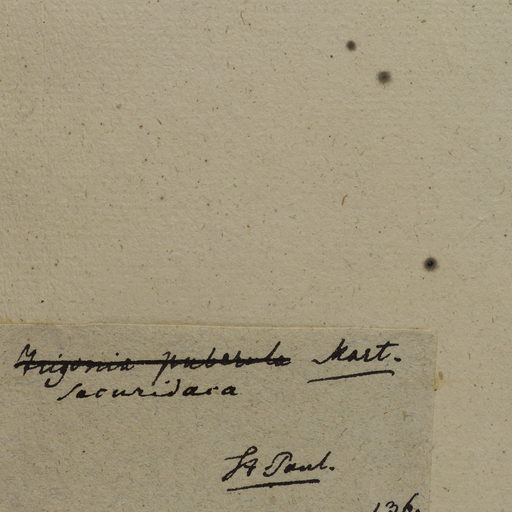 Trigonia puberula Mart.
securidaca
St Paul.
136.